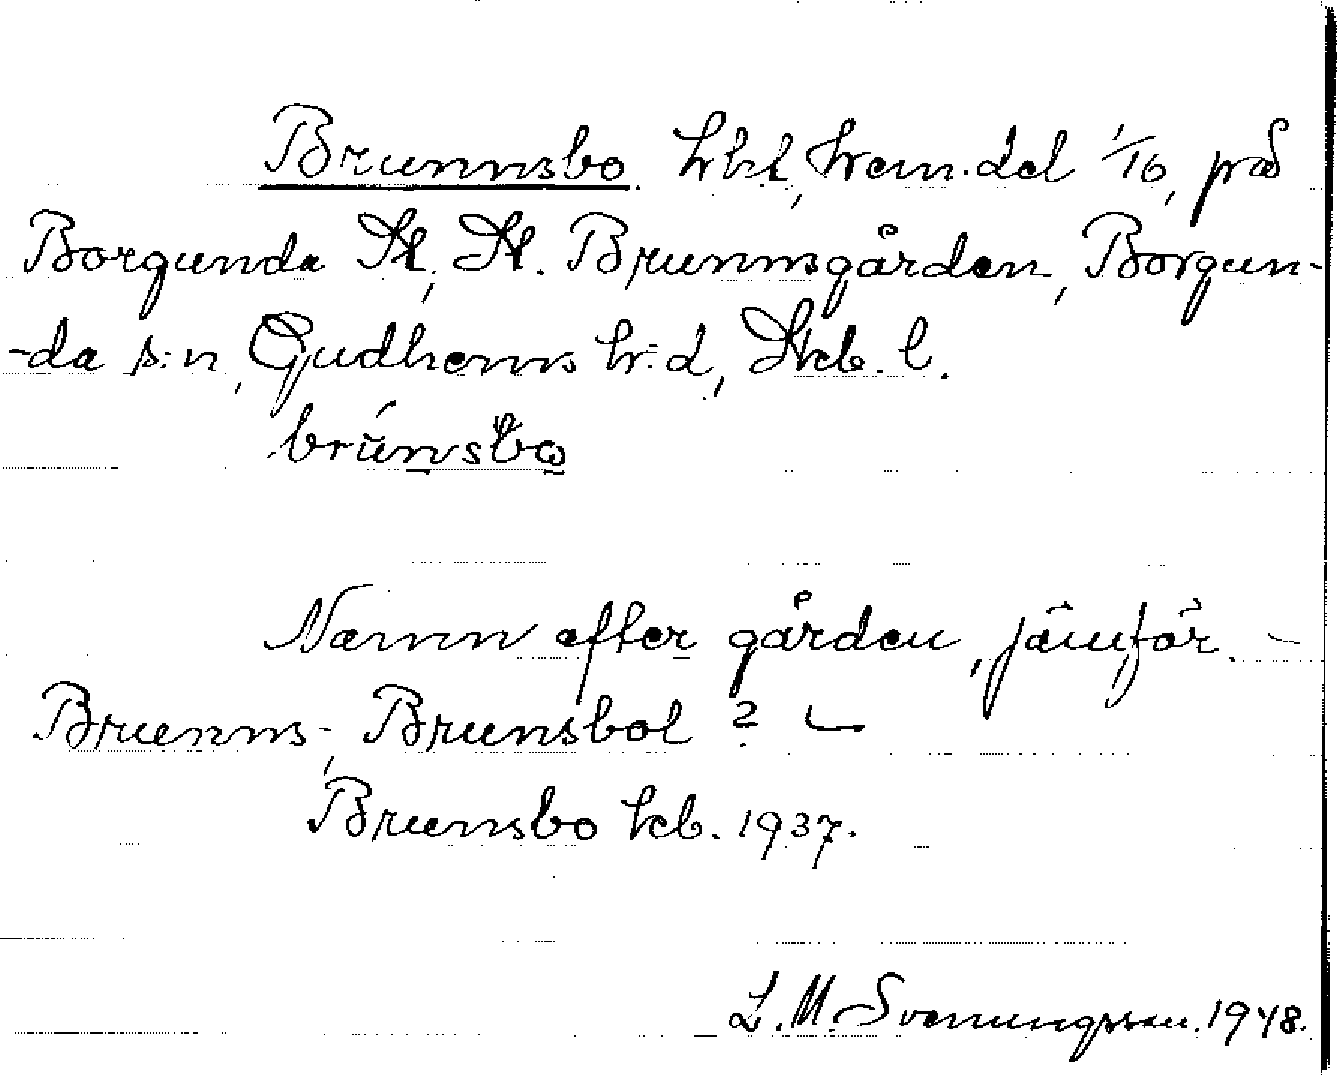 Brunnsbo hbt, hem.del 1/16, på
Borgunda St, St. Brunnsgården, Borgun-
-da s:n, Gudhems h:d, Skb. l.
brúnsbo
Namn efter gården, jämför. –
Brunns-, Brunsbol ?
Brunsbo kb. 1937.
L. M. Svenungsson. 1948.